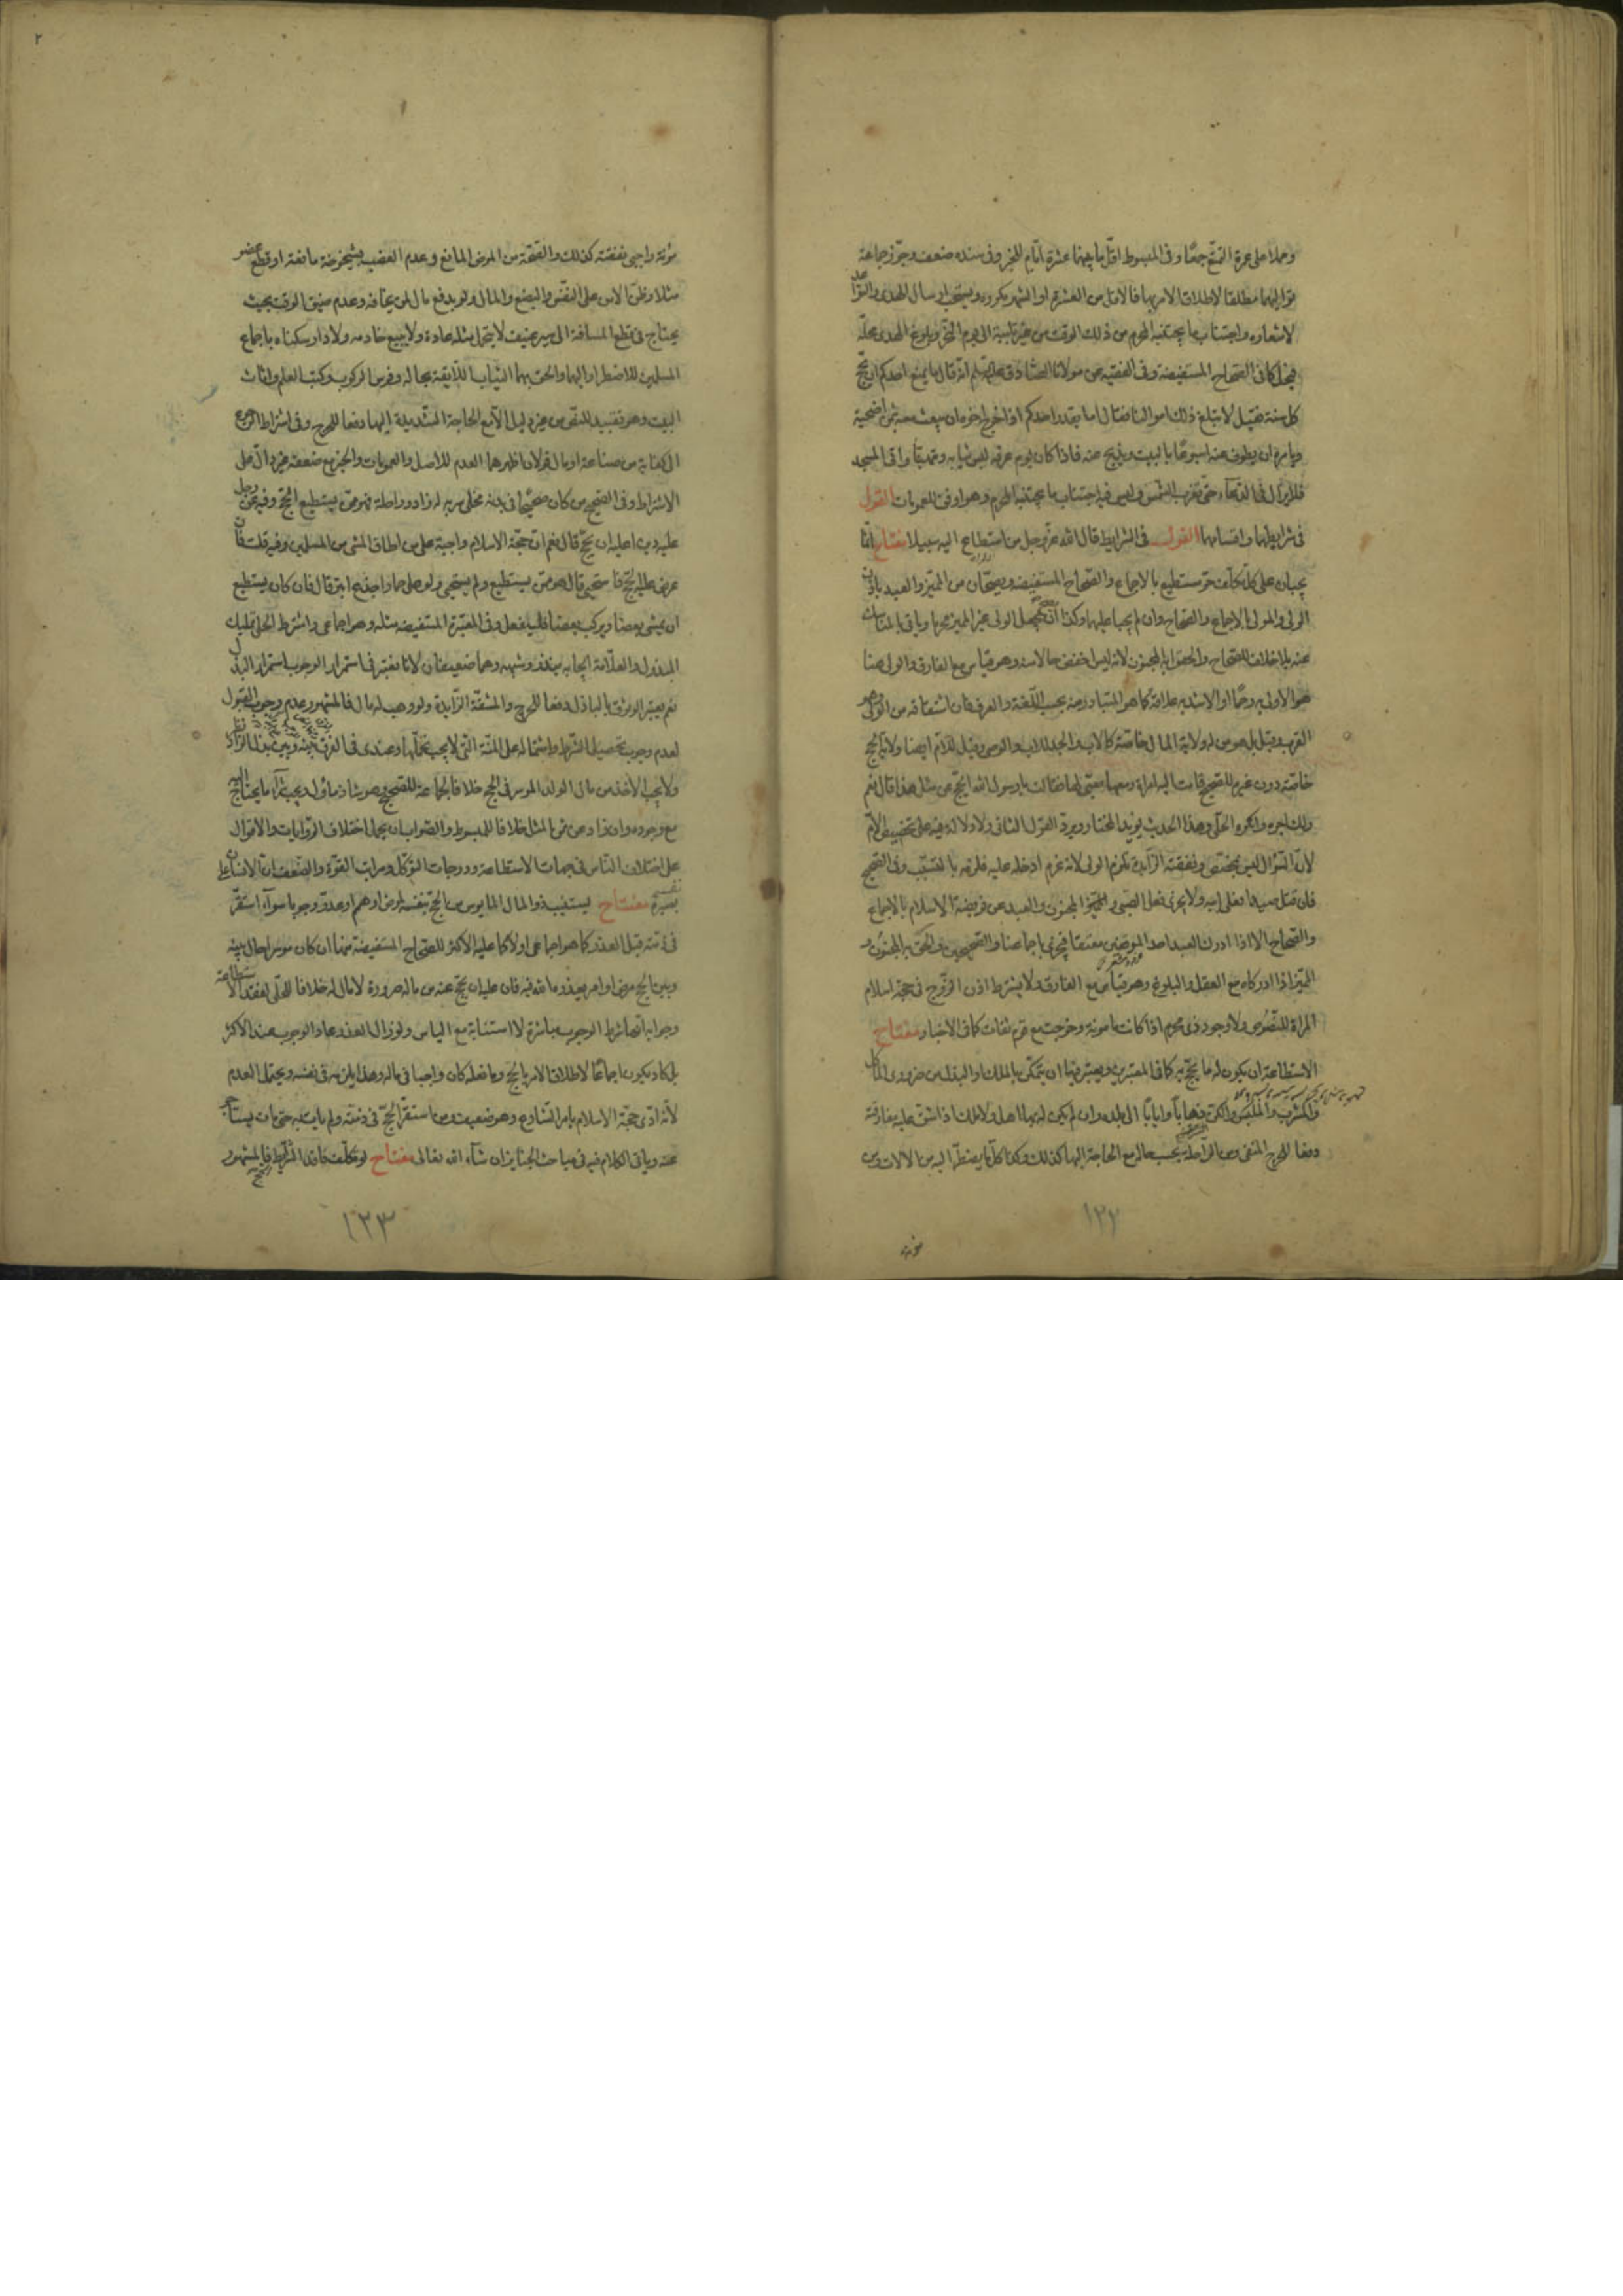 وحملا على عمرة التمتع جمعًا وفى المبسوط اقل ما بينهما عشرة ايّام للخبر وفى سنده ضعف وجوّز جماعة
تواليهما مطلقا لاطلاق الامر بها فالاقل من العشرة او الشهر مكروه ويستحب ارسال الهدى والتواعد
لاشعاره واجتناب ما يجتنبه المحرم من ذلك الوقت من غير تلبية الى يوم النحر وبلوغ الهدى محلّه
فيحل كما فى الصحاح المستفيضة وفى الفقيه عن مولانا الصادق عليه السّلم انه قال ما يمنع احدكم ان يحجّ
كل سنة فقيل لا يبلغ ذلك اموالنا فقال اما يقدر احدكم اذا خرج اخوه ان يبعث معه ثمن اضحية
ويامره ان يطوف عنه اسبوعًا بالبيت ويذبح عنه فاذا كان يوم عرفه لبس ثيابه وتهيّأ واتى المسجد
فلا يزال فى الدعآء حتى تغرب الشمس وليس فيه اجتناب ما يجتنبه المحرم وهو اوفق للعمومات القول
فى شرايطهما واقسامهما القول فى الشرايط قال الله عزّ وجل من استطاع اليه سبيلا مفتاح انّما
يجبان على كل مكلف حرّ مستطيع بالاجماع والصحاح المستفيضة ويصحّان من المميّز والعبد باذن
الولى والمولى بالاجماع والصحاح وان لم يجبا عليهما وكذا يجعل الولى غير المميز محرما وياتى بالمناسك
عنه بلا خلاف للصحاح والحقوا به المجنون لانه ليس اخفض حالا منه وهو قياس مع الفارق والولى هنا
هو الاولى به رحمًا او الاشد به علاقة كما هو المتبادر منه بحسب اللّغة والعرف فان اشتقاقه من الولى وهو
القرب وقيل بل هو من له ولاية المال خاصّة كالاب والجد للاب والوصى وقيل للام ايضا ولاية الحج
خاصّة دون غيره للصحيح قامت اليه امراة ومعها صبى لها فقالت يا رسول الله ايحجّ عن مثل هذا قال نعم
ولك اجره وانكره الحلّى وهذا الحديث يؤيد المختار ويردّ القول الثانى ولا دلالة فيه على تخصيص الامّ
لانّ السّؤال ليس بمختص ونفقته الزّايدة تلزم الولى لانه غرم ادخله عليه فلزمه بالتسبّب وفى الصحيح
فان قتل صيدا فعلى ابيه ولا يجزى فعل الصبى والمجنون والعبد عن فريضة الاسلام بالاجماع
والصحاح الا اذا ادرك العبد احد الموقفين معتقا فيجزى اجماعنا والصحيحين والحق به المجنون و
المميّز اذا ادركاه مع العقل والبلوغ وهو قياس مع الفارق ولا يشترط اذن الزّوج فى حجة اسلام
المراة للنصّوص ولا وجود ذى محرم اذا كانت مامونة وخرجت مع قوم ثقات كما فى الاخبار مفتاح
الاستطاعة ان يكون له ما يحجّ به كما فى المعتبرين ويعتبر فيها ان يتمكّن بالملك والبذل من ضرورى الماكل
والمشرب والملبس والمركب ذهابًا وايابًا الى بلده وان لم يكن له بها اهل ولا ملك اذا شقّ عليه مفارقته
دفعا للحرج المنفى ومن الرّاحلة بحسب حاله مع الحاجة اليها كذلك وكذا كل ما يضطرّ اليه من الالات ومن
١٣٢
مؤنة واجبى نفقته كذلك والصّحة من المرض المانع وعدم العضب بشيخوخة مانعة او قطع عضو
مثلا وظنّ الامن على النفس والبضع والمال ولو بدفع مال لمن يخافه وعدم ضيق الوقت بحيث
يحتاج فى قطع المسافة الى سير عنيف لا يتحمل مثله عادة ولا يبيع خادمه ولا دار سكناه باجماع
المسلمين للاضطرار اليهما والحق بهما الثياب اللّايقة بحاله وفرس الركوب وكتب العلم واثاث
البيت وهو تقييد للنصّ من غير دليل الّا مع الحاجة الشّديدة اليها دفعا للحرج وفى اشتراط الرجوع
الى كفاية من صناعة او مال قولان اظهرهما العدم للاصل والعمومات والخبر مع ضعفه غير دالّ على
الاشتراط وفى الصّحيح من كان صحيحًا فى بدنه مخلّى سربه له زاد وراحلة فهو ممّن يستطيع الحجّ وفيه عن رجل
عليه دين اعليه ان يحجّ قال نعم انّ حجّة الاسلام واجبة على من اطاق المشى من المسلمين وفيه قلت فان
عرض عليه الحجّ فاستحيى قال هو ممّن يستطيع ولم يستحيى ولو على حمار اجدع ابتر قال فان كان يستطيع
ان يمشى بعضا ويركب بعضا فليفعل وفى المعتبرة المستفيضه مثله وهو اجماعى واشترط الحلّى تمليك
المبذول والعلّامة ايجابه بنذر وشبهه وهما ضعيفان لانا نعتبر فى استمرار الوجوب استمرار البذل
نعم يعتبر الوثوق بالباذل دفعا للحرج والمشقّة الزّايدة ولو وهب له مال فالمشهور عدم وجوب القبول
لعدم وجوب تحصيل الشرط واشتماله على المنّة التى لا يجب تحمّلها وعندى فى الفرق بينه وبين بذل الزّاد نظر
ولا يجب الاخذ من مال الولد الموسر فى الحج خلافا لجماعة للصحيح وهو شاذ مأول ويجب شرآء ما يحتاج اليه
مع وجوده وان زاد عن ثمن المثل خلافا للمبسوط والصّواب ان يحمل اختلاف الرّوايات والاقوال
على اختلاف النّاس فى جهات الاستطاعة ودرجات التوكّل ومراتب القوّة والضّعف انّ الانسان على
نفسه بصيرة مفتاح يستنيب ذو المال المايوس من الحجّ بنفسه لمرض او هرم او عدوّ وجوبا سوآء استقرّ
فى ذمّته قبل العذر كما هو اجماعى او لا كما عليه الاكثر للصّحاح المستفيضة منها ان كان موسرا حال بينه
وبين الحج مرض او امر يعذره الله فيه فان عليه ان يحجّ عنه من ماله صرورة لا مال له خلافا للحلّى لفقد الاستطاعة
وجوابه انّها شرط الوجوب مباشرة لا استنابة مع الياس ولو زال العذر عاد الوجوب عند الاكثر
بل كاد يكون اجماعًا لاطلاق الامر بالحج وما فعله كان واجبا فى ماله وهذا يلزمه فى نفسه ويحتمل العدم
لانّه ادّى حجّة الاسلام بامر الشّارع وهو ضعيف ومن استقرّ الحجّ فى ذمّته ولم يات به حتى مات يستاجر
عنه وياتى الكلام فيه فى مباحث الجنايز ان شآء الله تعالى مفتاح لو تكلّف فاقد الشّرايط الحج فالمشهور
١٣٣